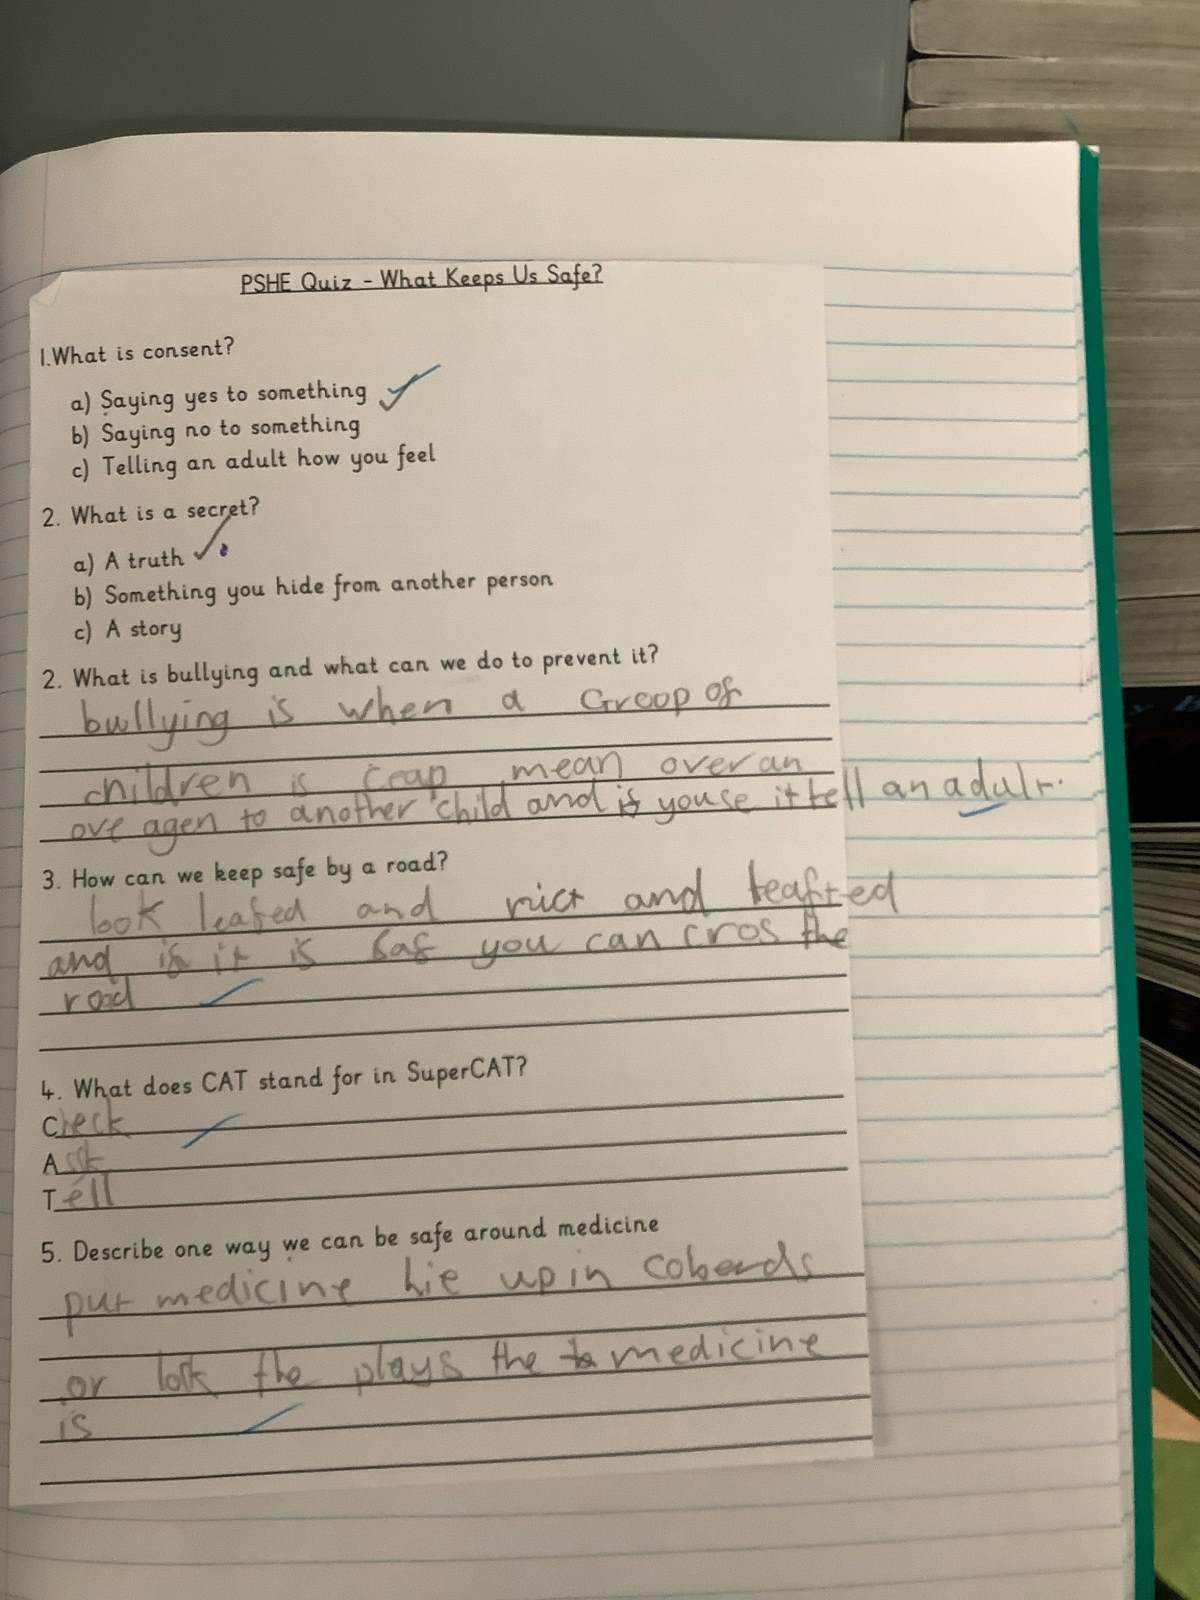 PSHE Quiz - What Keeps Us Safe?
1.What is consent?
a) Saying yes to something
b) Saying no to something
c) Telling an adult how you feel
2. What is a secret?
a) A truth
b) Something you hide from another person
c) A story
2. What is bullying and what can we do to prevent it?
bullying is when a Groop of
children is mean over an
ove agen to another child and if youse it tell an adulr.
3. How can we keep safe by a road?
look leafed and rict and
and if it is saf you can cros the
road
4. What does CAT stand for in SuperCAT?
Check
Ask
Tell
5. Describe one way we can be safe around medicine
put medicine hie up in coberds
or lok the plays the medicine
is